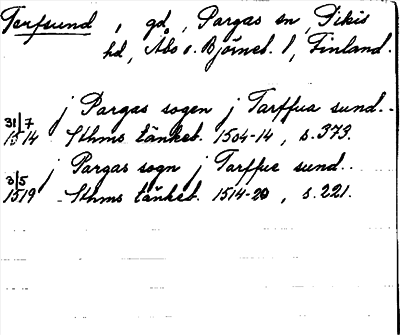 Tarfsund, gd, Pargas sn, Pikis
hd, Åbo o. Björneb. l, Finland.
31/7 1514 j Pargas sogen j Tarffua sund..
Sthms tänkeb. 1504-14, s. 373.
3/5 1519 j Pargas sogn j Tarffue sund..
Sthms tänkeb. 1514-20, s. 221.